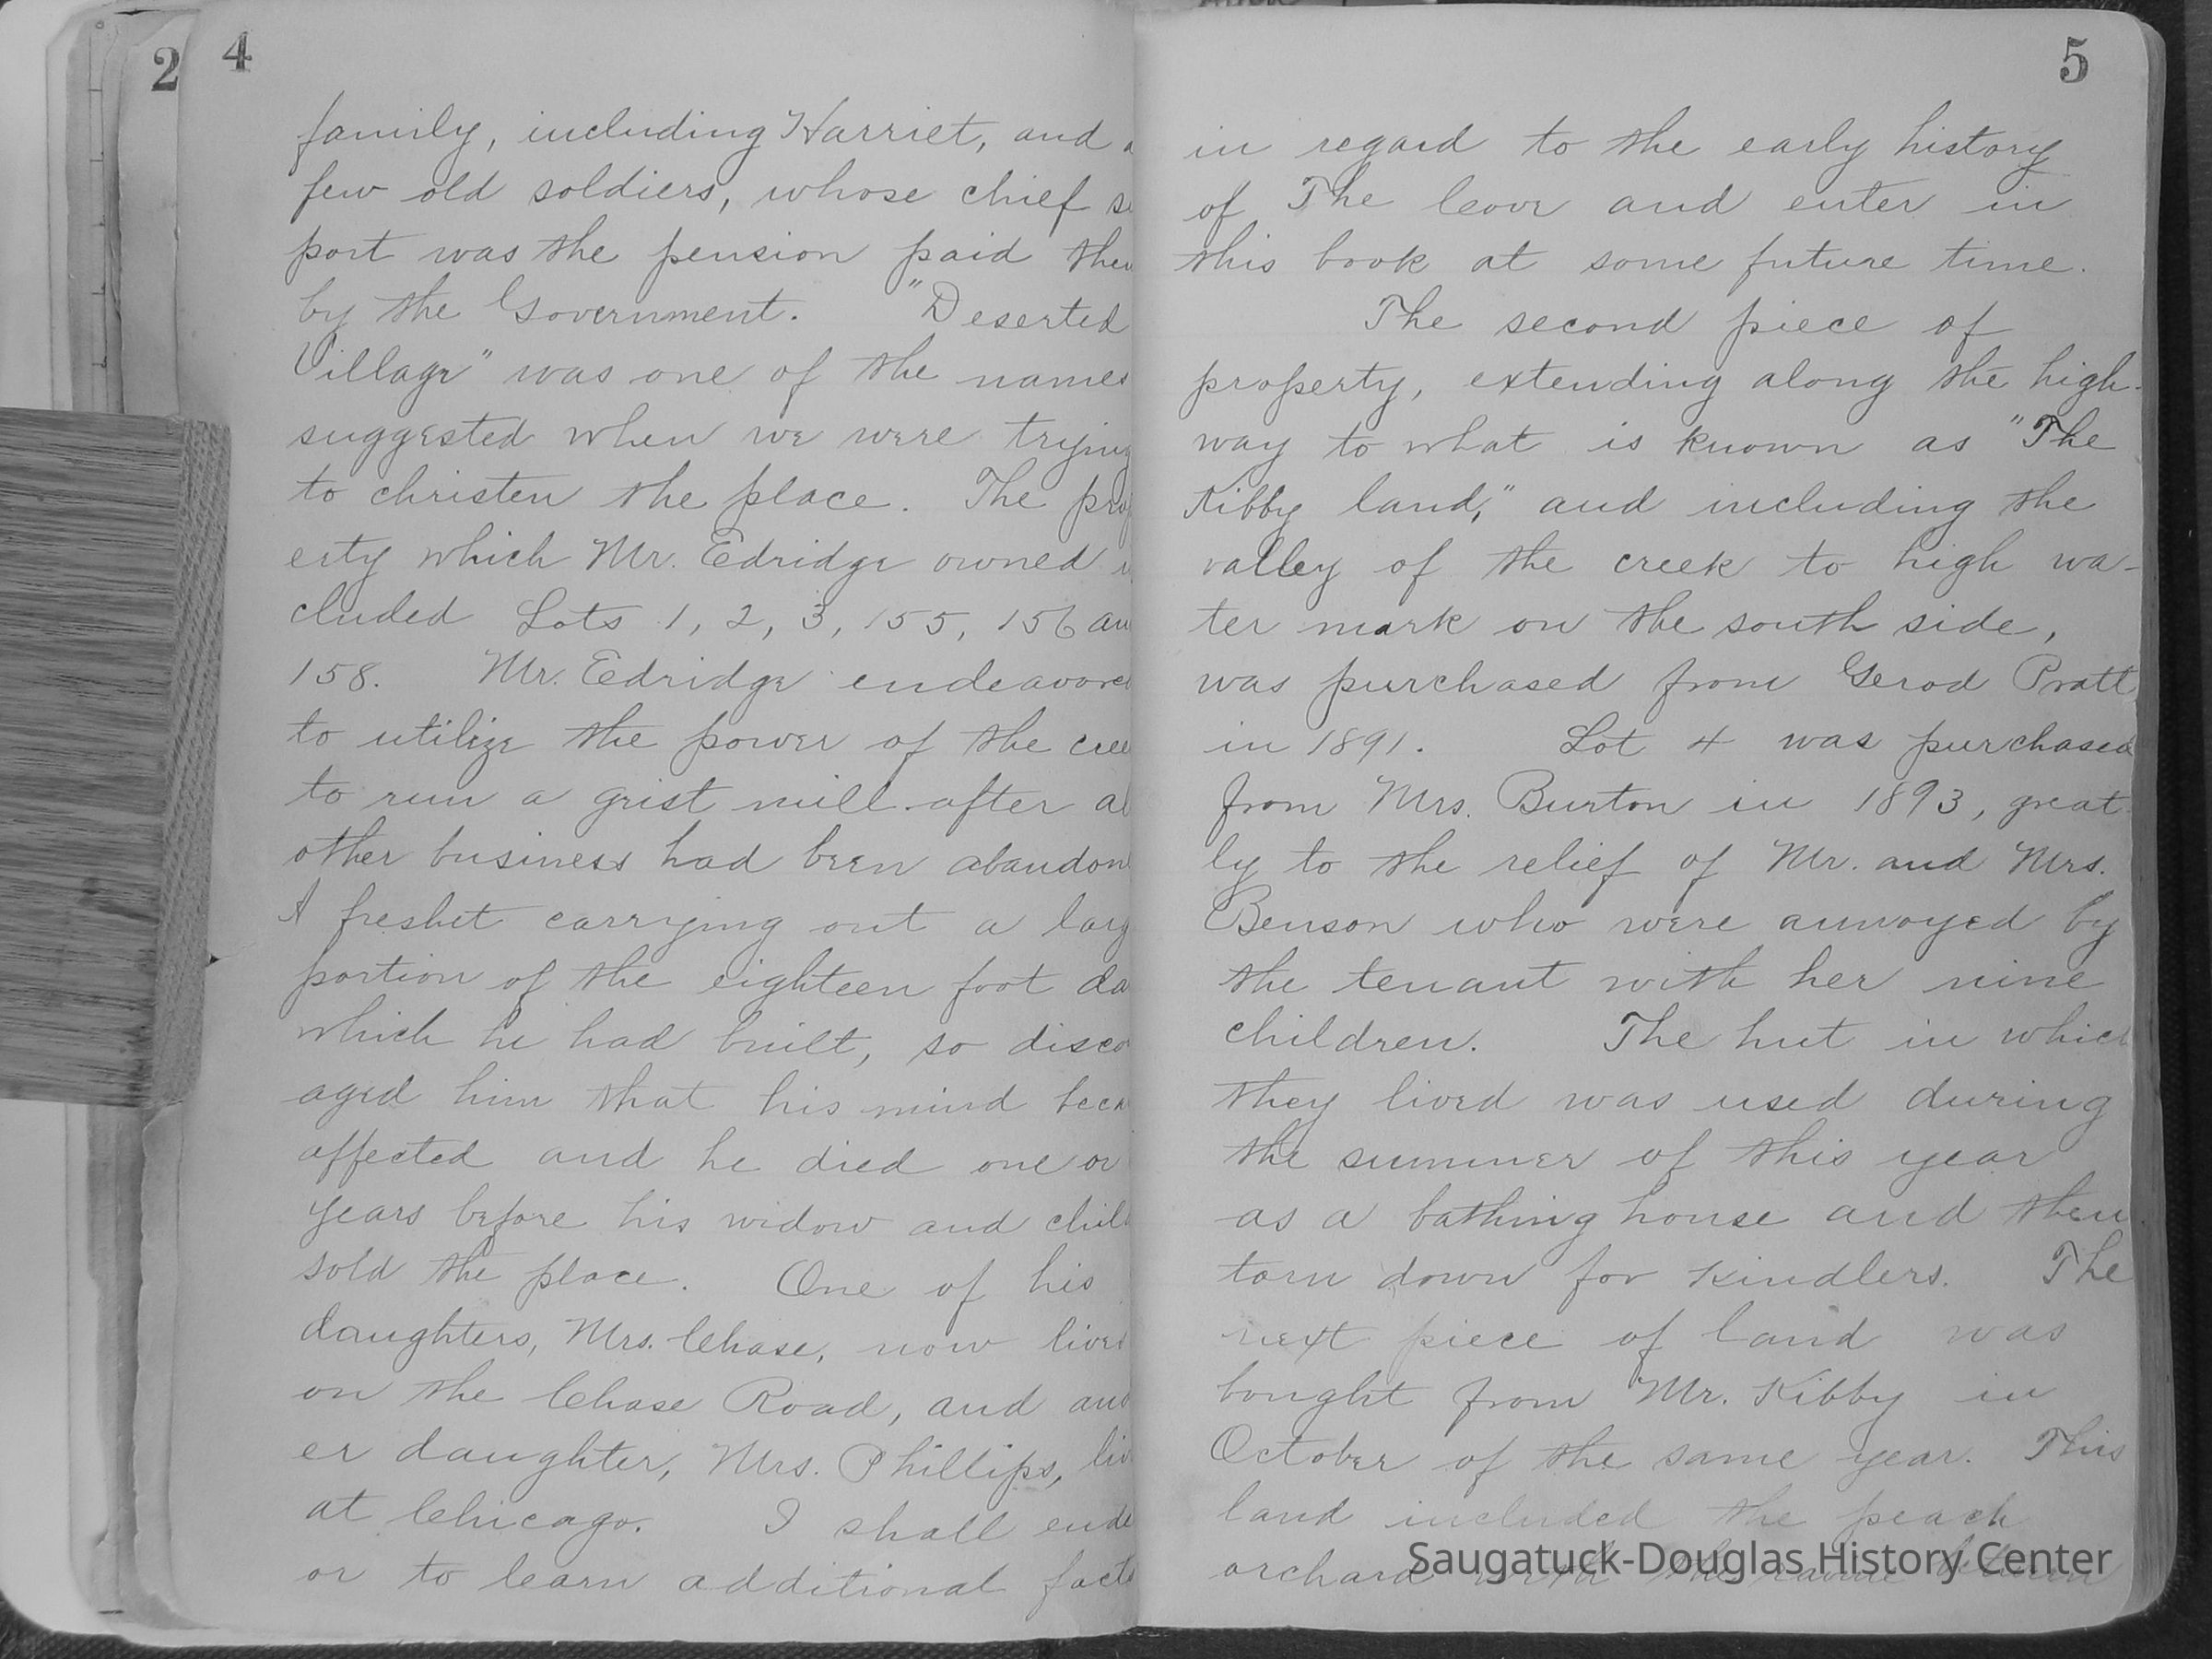 2
4
family, including Harriet, and a
few old soldiers, whose chief su
port was the pension paid them
by the Government. "Deserted
Village" was one of the names
suggested when we were trying
to christen the place. The prop
erty which Mr. Edridge owned in
cluded Lots 1, 2, 3, 155, 156 an
158. Mr. Edridge endeavored
to utilize the power of the cree
to run a grist mill after al
other business had been abandon
A freshet carrying out a larg
portion of the eighteen foot da
which he had built, so disco
aged him that his mind beca
affected and he died one or
years before his widow and chil
sold the place. One of his
daughters, Mrs. Chase, now lives
on the Chase Road, and ano
er daughter, Mrs. Phillips, liv
at Chicago. I shall ende
or to learn additional facts
5
in regard to the early history
of The Cove and enter in
this book at some future time.
The second piece of
property, extending along the high-
way to what is known as "The
Kibby land," and including the
valley of the creek to high wa-
ter mark on the south side,
was purchased from Gerod Pratt
in 1891. Lot 4 was purchased
from Mrs. Burton in 1893, great
ly to the relief of Mr. and Mrs.
Benson who were annoyed by
the tenant with her nine
children. The hut in which
they lived was used during
the summer of this year
as a bathing house and then
torn down for kindlers. The
next piece of land was
bought from Mr. Kibby in
October of the same year. This
land included the peach
orchard with the ravine between
Saugatuck-Douglas History Center